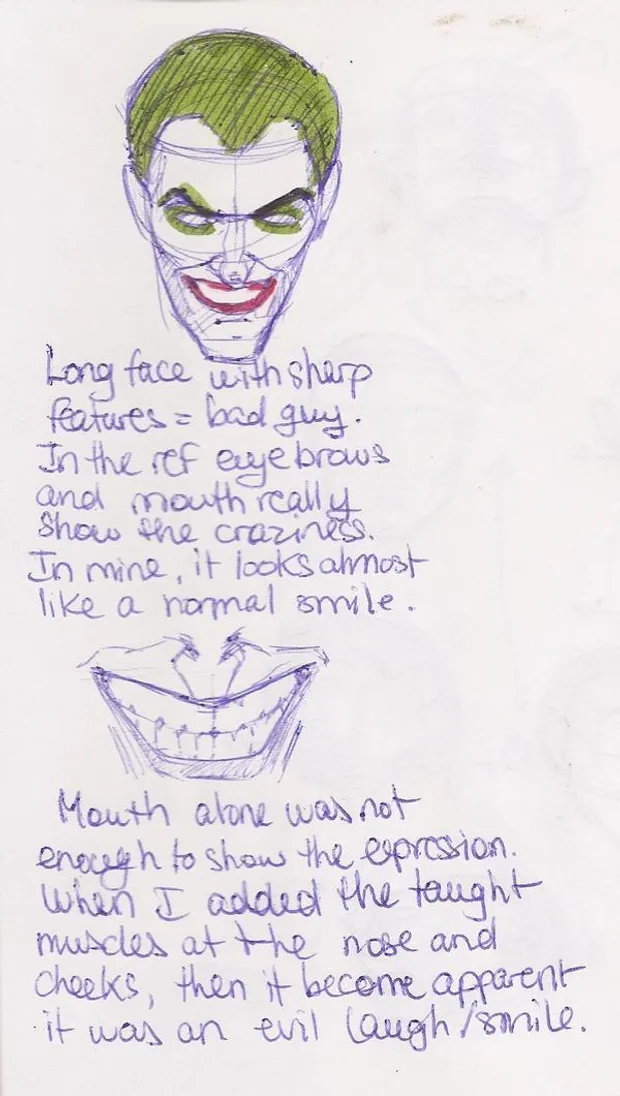 Long face with sharp
features = bad guy.
In the ref eyebrows
and mouth really
show the craziness.
In mine, it looks almost
like a normal smile.
Mouth alone was not
enough to show the expression.
When I added the taught
muscles at the nose and
cheeks, then it become apparent
it was an evil laugh/smile.